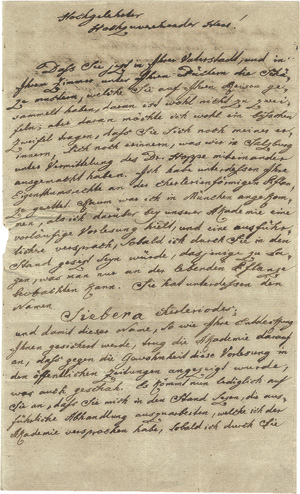 Hochgelehrter
Hochzuverehrender Herr!
Daß Sie jetzt in Ihrer Vaterstadt, und in
Ihrem Zimmer unter Ihren Büchern die Schä-
ze mustern, welche Sie auf Ihren Reisen ge-
sammelt haben, daran ist wohl nicht zu zwei-
feln; aber daran möchte ich wohl ein bischen
Zweifel tragen, daß Sie sich noch meiner er-
innern, sich noch erinnern, was wir in Salzburg
unter Vermittelung des Dr. Hoppe miteinander
ausgemacht haben. Ich habe unterdessen Ihre
Eigenthumsrechte an der
Kaum war ich in München angekom-
men, als ich darüber bey unserer Akademie eine
vorläufige Vorlesung hielt, und eine ausführ-
liche versprach, sobald ich durch Sie in den
Stand gesezt seyn würde, dasjenige zu sa-
gen, was man nur an der lebenden Pflanze
beobachten kann. Sie hat unterdessen den
Namen
Siebera
und damit dieser Name, so wie Ihre Entdeckung
Ihnen gesichert werde, trug die Akademie darauf
an, daß gegen die Gewohnheit diese Vorlesung in
den öffentlichen Zeitungen angezeigt wurde,
was auch geschah. Es kömmt nun lediglich auf
Sie an, daß Sie mich in den Stand sezen, die aus-
führliche Abhandlung auszuarbeiten, welche ich der
Akademie versprochen habe, sobald ich durch Sie